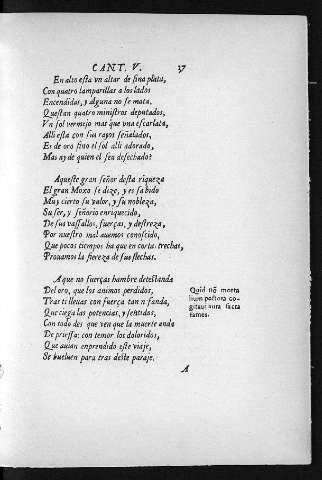 CANT. V. 27
En alto esta vn altar de fina plata,
Con quatro lamparillas a los lados
Encendidas, y alguna no se mata,
Questan quatro ministros deputados,
Vn sol vermejo mas que vna escarlata,
Alli esta con sus rayos señalados,
Es de oro fino el sol alli adorado,
Mas ay de quien el sea desechado?
Aqueste gran señor desta riqueza
El gran Moxo se dize, y es sabido
Muy cierto su valor, y su nobleza,
Su ser, y señorio enriquecido,
De sus vassallos, fuerças, y destreza,
Por nuestro mal auemos conoscido,
Que pocos tiempos ha que en corta trechas,
Prouamos la fiereza de sus flechas.
A que no fuerças hambre detestanda
Del oro, que los animos perdidos,
Tras ti lleuas con fuerça tan nfanda,
Que ciega las potencias, y sentidos,
Con todo des que ven que la muerte anda
De priessa: con temor los doloridos,
Que auian emprendido este viaje,
Se bueluen para tras deste paraje.
Quid nō morta
lium pectora co-
gitaut aura sacra
fames.
A